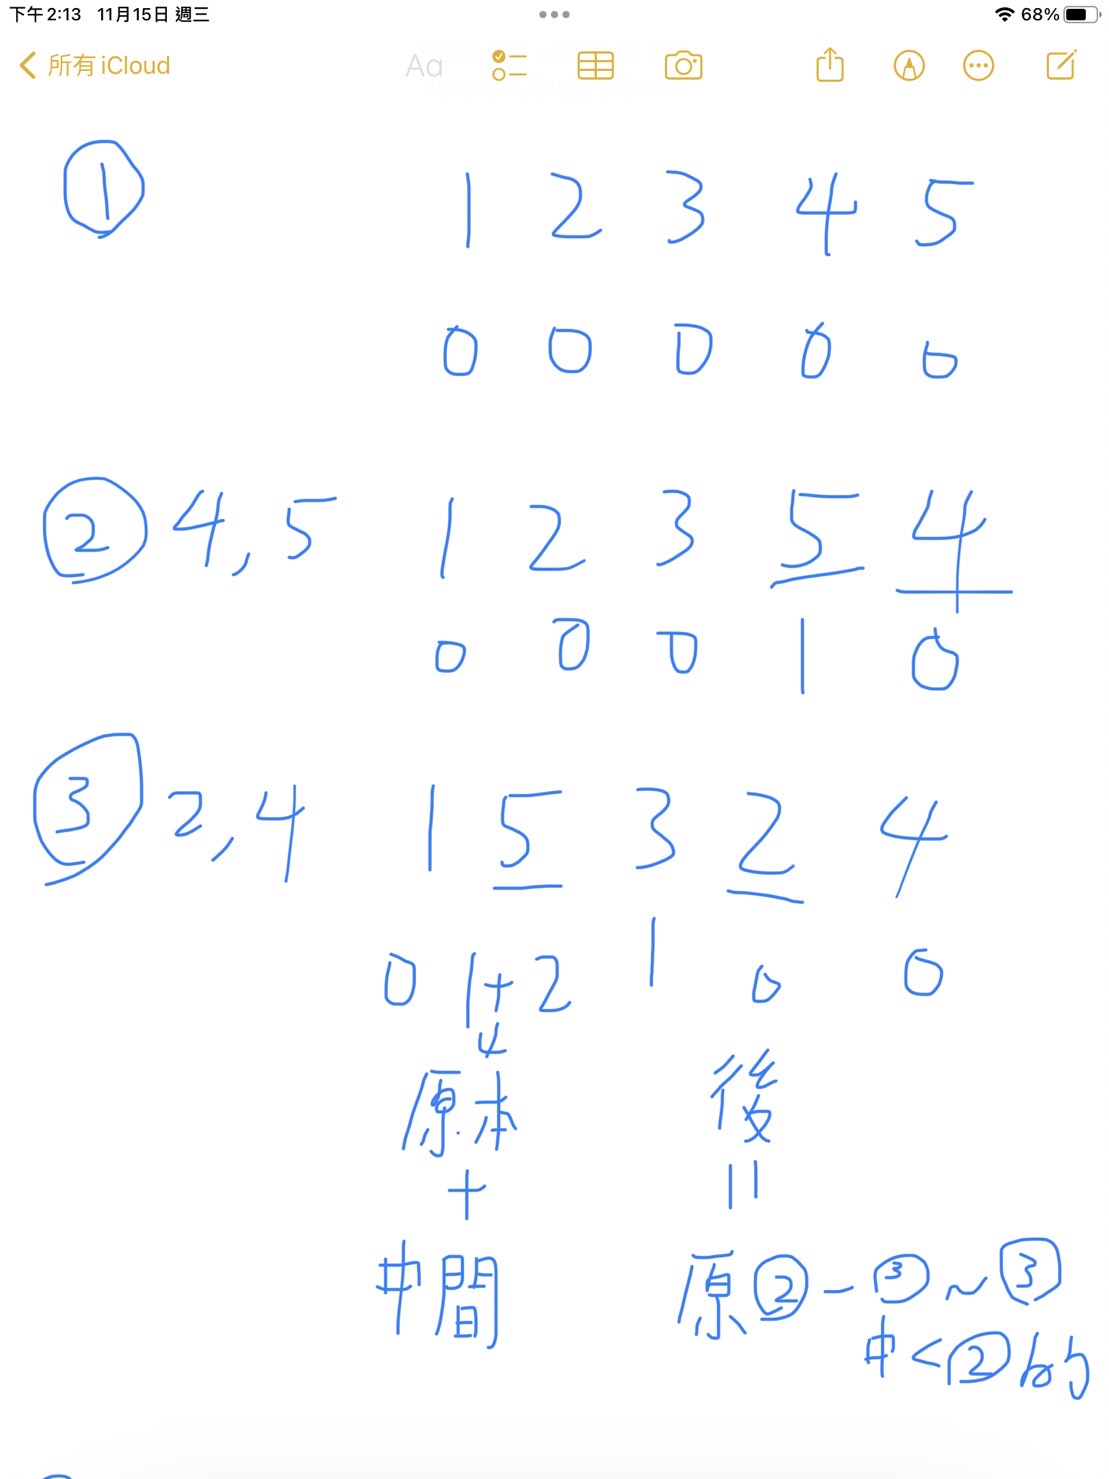 下午2:13 11月15日 週三 68%
所有 iCloud Aa
① 1 2 3 4 5
0 0 0 0 0
② 4,5 1 2 3 5 4
0 0 0 1 0
③ 2,4 1 5 3 2 4
0 1+2 1 0 0
原本 後
+ =
中間 原②-③~③
中<②的